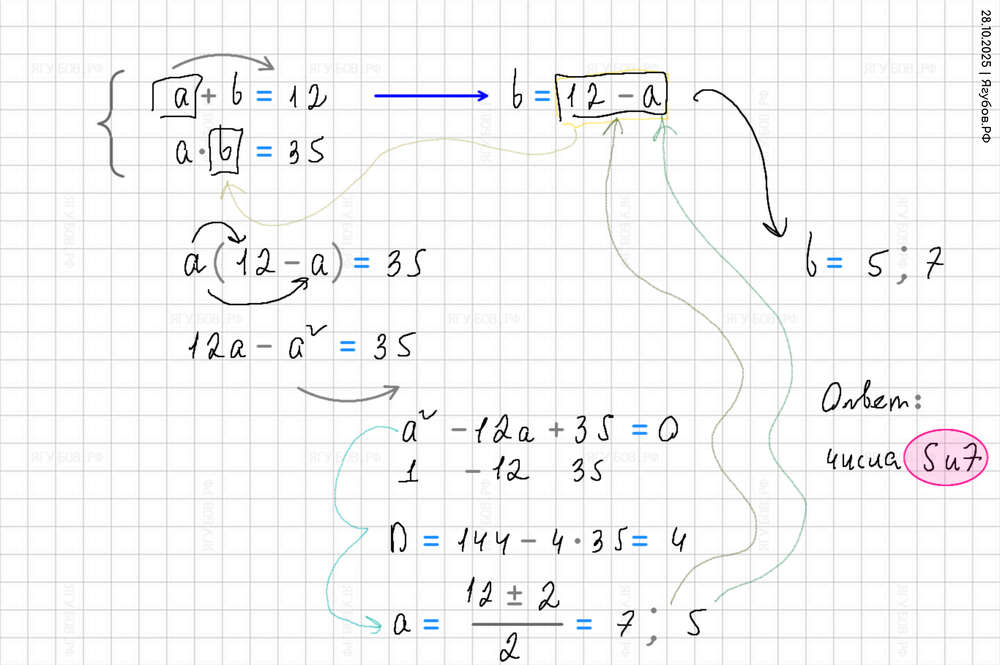 28.10.2025 | Ягубов.РФ
a + b = 12
b = 12 - a
a · b = 35
a(12 - a) = 35
b = 5 ; 7
12a - a² = 35
a² - 12a + 35 = 0
1 - 12 35
D = 144 - 4 · 35 = 4
a = \frac{12 ± 2}{2} = 7 ; 5
Ответ:
числа 5 и 7
ЯГУБОВ.РФ